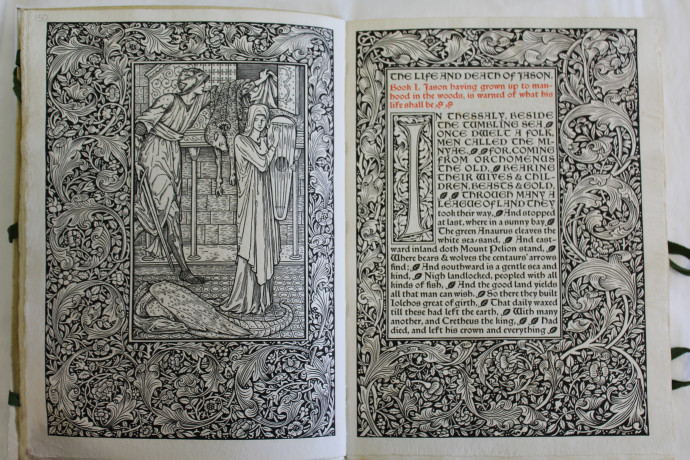 THE LIFE AND DEATH OF JASON.
Book I. Jason having grown up to man-
hood in the woods, is warned of what his
life shall be
IN THESSALY, BESIDE
THE TUMBLING SEA,
ONCE DWELT A FOLK,
MEN CALLED THE MI-
NYAE; FOR, COMING
FROM ORCHOMENUS
THE OLD, BEARING
THEIR WIVES & CHIL-
DREN, BEASTS & GOLD,
THROUGH MANY A
LEAGUE OF LAND THEY
took their way, And stopped
at last, where in a sunny bay
The green Anaurus cleaves the
white sea-sand, And east-
ward inland doth Mount Pelion stand,
Where bears & wolves the centaurs' arrows
find; And southward is a gentle sea and
kind, Nigh landlocked, peopled with all
kinds of fish, And the good land yields
all that man can wish. So there they built
Iolchos great of girth, That daily waxed
till these had left the earth, With many
another, and Cretheus the king, Had
died, and left his crown and everything